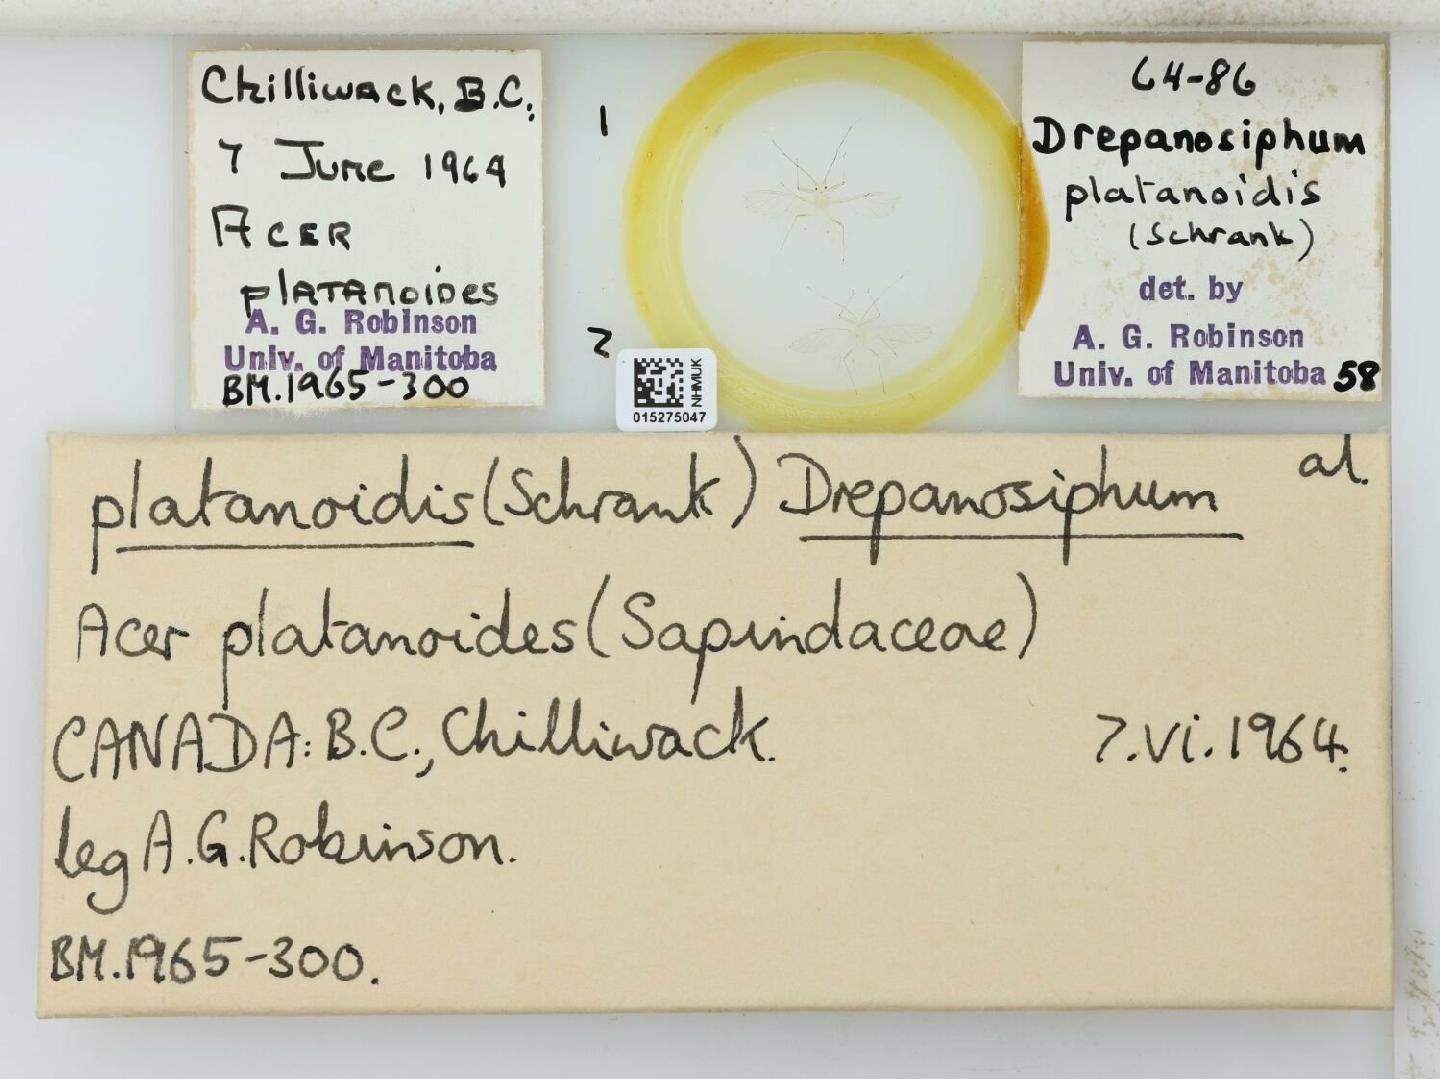 Chilliwack, B.C.
7 June 1964
ACER
platanoides
A. G. Robinson
Univ. of Manitoba
BM.1965-300
1
2
NHMUK
015275047
64-86
Drepanosiphum
platanoidis
(Schrank)
det. by
A. G. Robinson
Univ. of Manitoba 58
al.
platanoidis (Schrank) Drepanosiphum
Acer platanoides (Sapindaceae)
CANADA: B.C., Chilliwack. 7.vi.1964.
leg A.G. Robinson.
BM.1965-300.